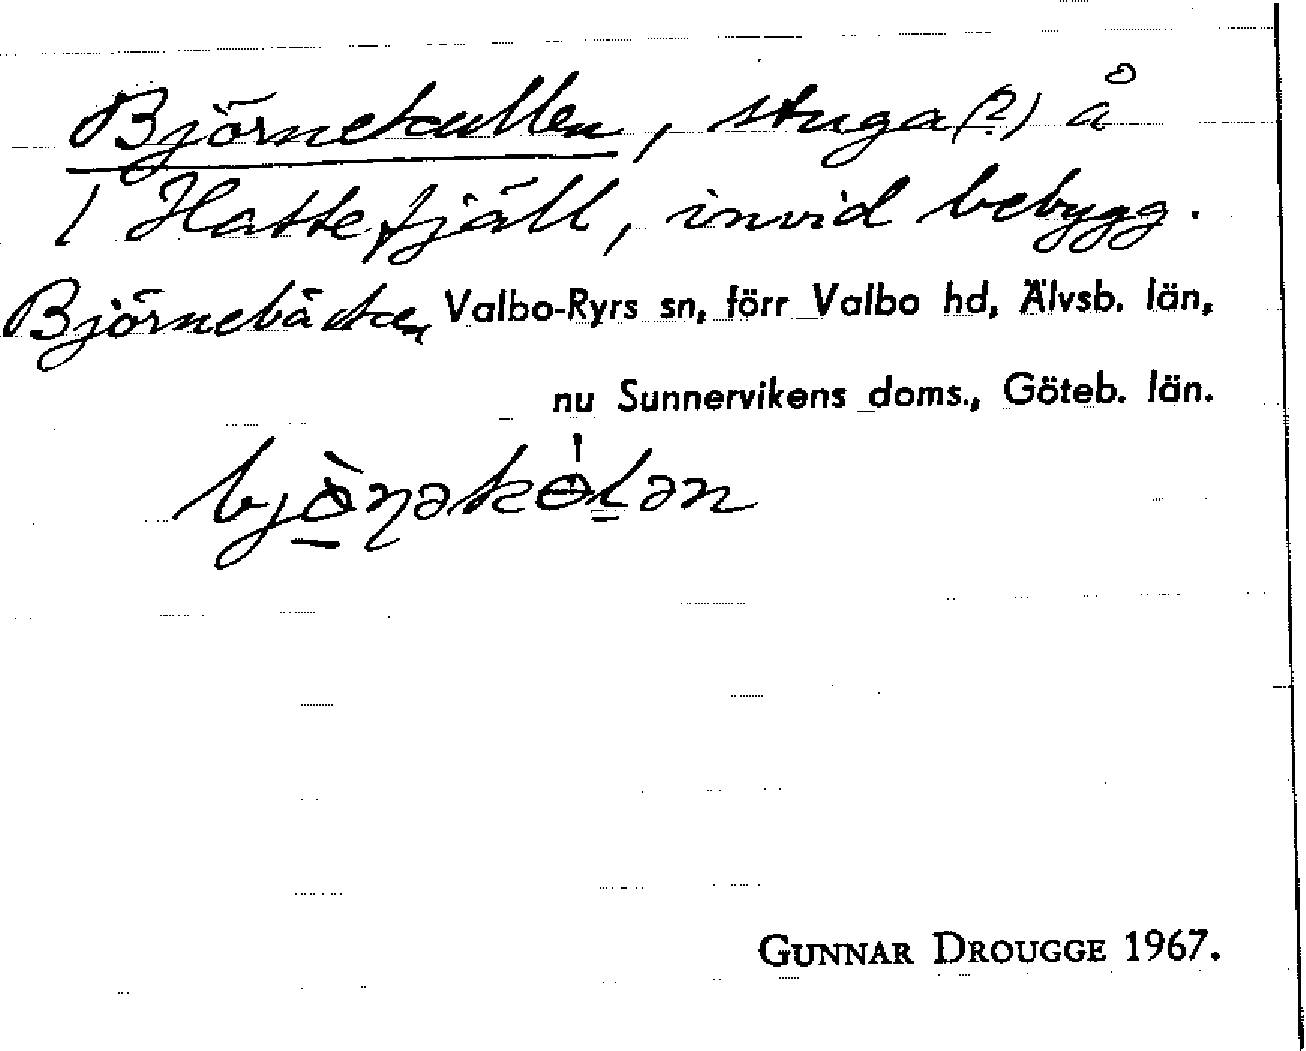 Björnekullen, stuga (?) å
1 Hattefjäll, invid bebygg.
Björnebäcken Valbo-Ryrs sn, förr Valbo hd, Älvsb. län,
nu Sunnervikens doms., Göteb. län.
GUNNAR DROUGGE 1967.